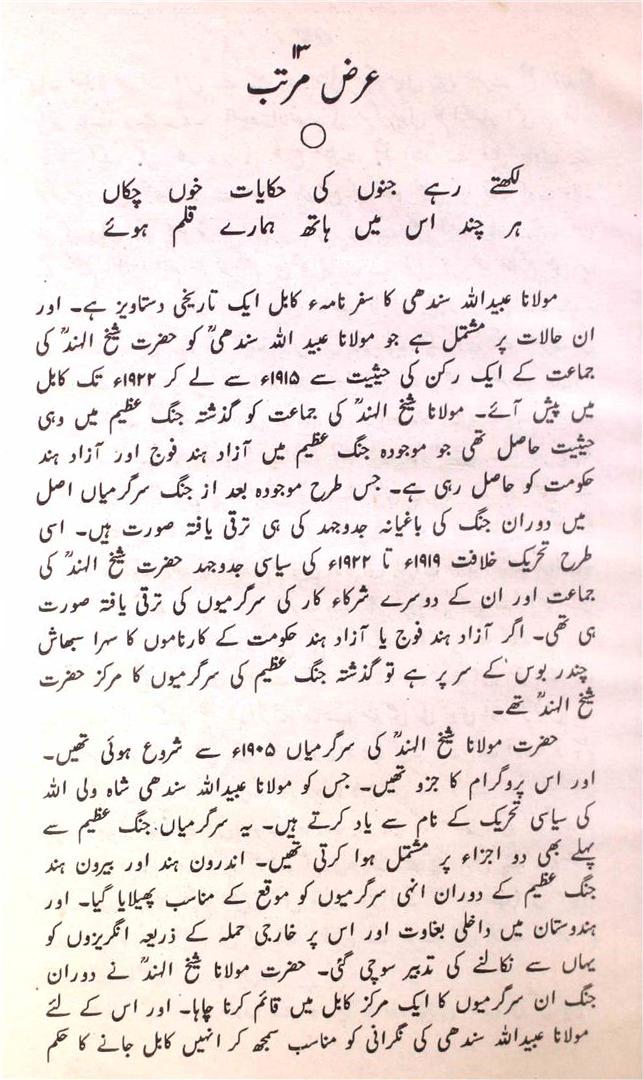 ۱۳
عرض مرتب
لکھتے رہے جنوں کی حکایات خوں چکاں
ہر چند اس میں ہاتھ ہمارے قلم ہوئے
مولانا عبیداللہ سندھی کا سفر نامہء کابل ایک تاریخی دستاویز ہے۔ اور
ان حالات پر مشتمل ہے جو مولانا عبید اللہ سندھیؒ کو حضرت شیخ الہندؒ کی
جماعت کے ایک رکن کی حیثیت سے ۱۹۱۵ء سے لے کر ۱۹۲۲ء تک کابل
میں پیش آئے۔ مولانا شیخ الہندؒ کی جماعت کو گذشتہ جنگ عظیم میں وہی
حیثیت حاصل تھی جو موجودہ جنگ عظیم میں آزاد ہند فوج اور آزاد ہند
حکومت کو حاصل رہی ہے۔ جس طرح موجودہ بعد از جنگ سرگرمیاں اصل
میں دوران جنگ کی باغیانہ جدوجہد کی ہی ترقی یافتہ صورت ہیں۔ اسی
طرح تحریک خلافت ۱۹۱۹ء تا ۱۹۲۲ء کی سیاسی جدوجہد حضرت شیخ الہندؒ کی
جماعت اور ان کے دوسرے شرکاء کار کی سرگرمیوں کی ترقی یافتہ صورت
ہی تھی۔ اگر آزاد ہند فوج یا آزاد ہند حکومت کے کارناموں کا سہرا سبھاش
چندر بوس کے سر پر ہے تو گذشتہ جنگ عظیم کی سرگرمیوں کا مرکز حضرت
شیخ الہندؒ تھے۔
حضرت مولانا شیخ الہندؒ کی سرگرمیاں ۱۹۰۵ء سے شروع ہوئی تھیں۔
اور اس پروگرام کا جزو تھیں۔ جس کو مولانا عبیداللہ سندھی شاہ ولی اللہ
کی سیاسی تحریک کے نام سے یاد کرتے ہیں۔ یہ سرگرمیاں جنگ عظیم سے
پہلے بھی دو اجزاء پر مشتمل ہوا کرتی تھیں۔ اندرون ہند اور بیرون ہند
جنگ عظیم کے دوران انہی سرگرمیوں کو موقع کے مناسب پھیلایا گیا۔ اور
ہندوستان میں داخلی بغاوت اور اس پر خارجی حملہ کے ذریعہ انگریزوں کو
یہاں سے نکالنے کی تدبیر سوچی گئی۔ حضرت مولانا شیخ الہندؒ نے دوران
جنگ ان سرگرمیوں کا ایک مرکز کابل میں قائم کرنا چاہا۔ اور اس کے لئے
مولانا عبیداللہ سندھی کی نگرانی کو مناسب سمجھ کر انہیں کابل جانے کا حکم